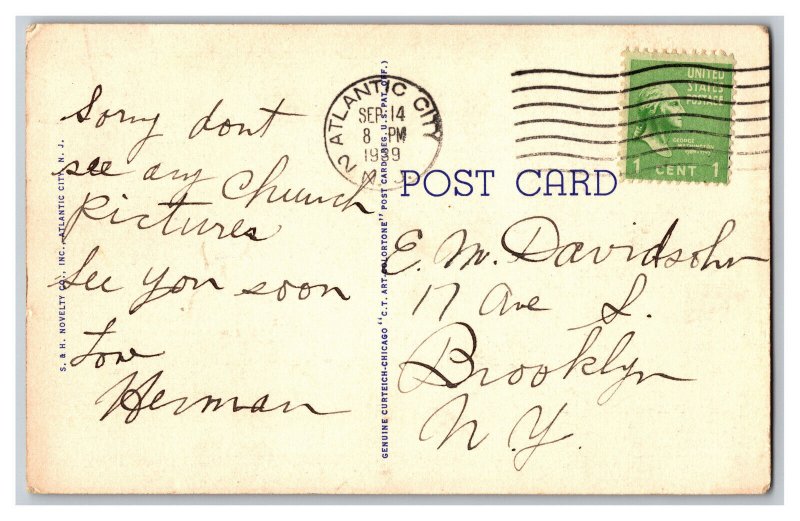 Sorry dont
see any Church
pictures
See you soon
Love
Herman
S. & H. NOVELTY CO., INC., ATLANTIC CITY, N. J.
GENUINE CURTEICH-CHICAGO "C. T. ART-COLORTONE" POST CARD (REG. U.S. PAT. OFF.)
ATLANTIC CITY
2
SEP 14
8 PM
1939
N. J.
UNITED
STATES
POSTAGE
GEORGE
WASHINGTON
1 CENT 1
POST CARD
E. M. Davidsohn
17 Ave S.
Brooklyn
N. Y.